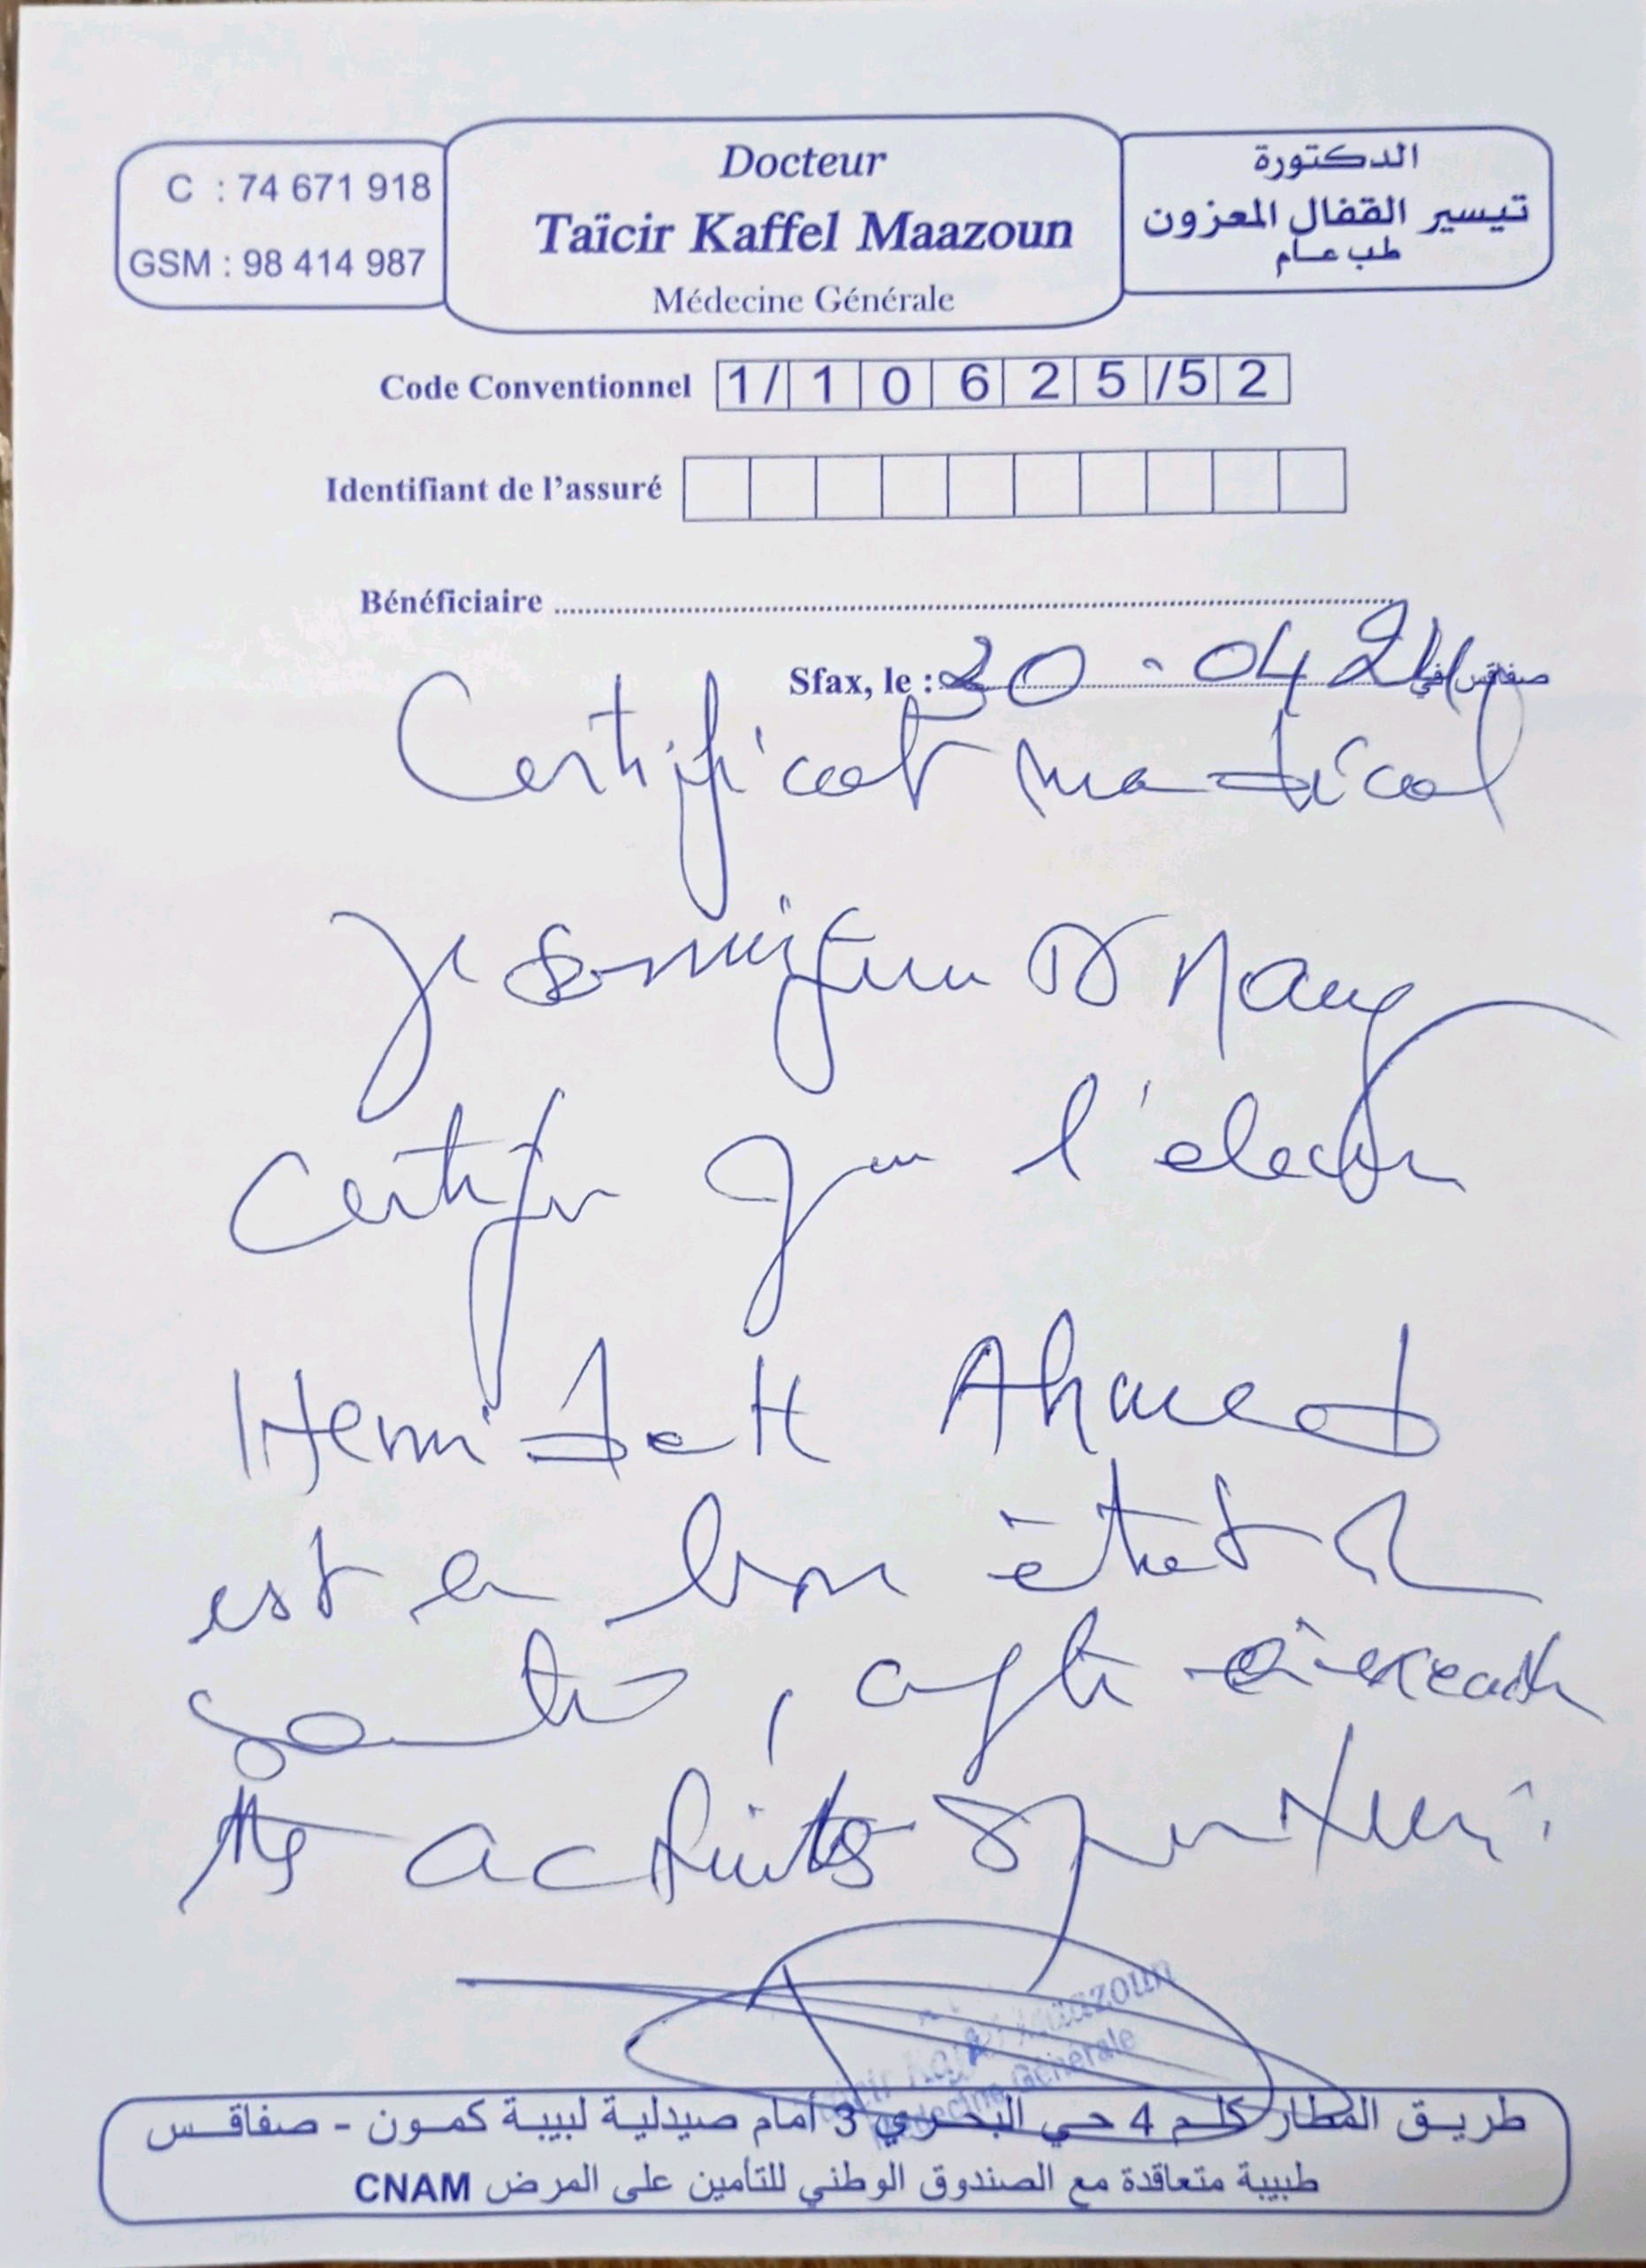 C : 74 671 918
GSM : 98 414 987
Docteur
Taïcir Kaffel Maazoun
Médecine Générale
الدكتورة
تيسير القفال المعزون
طب عام
Code Conventionnel 1/10625/52
Identifiant de l'assuré
Bénéficiaire
Sfax, le : 04 صفاقس في
Certificat médical
Je soussignée Dr
Certifie que l'élève
Hemidett Ahmed
est en bon état de
santé, apte à exercer
activités sportives.
Maazoun
Médecine Générale
طريق المطار كلم 4 حي البحري 3 أمام صيدلية لبيبة كمون - صفاقس
طبيبة متعاقدة مع الصندوق الوطني للتأمين على المرض CNAM